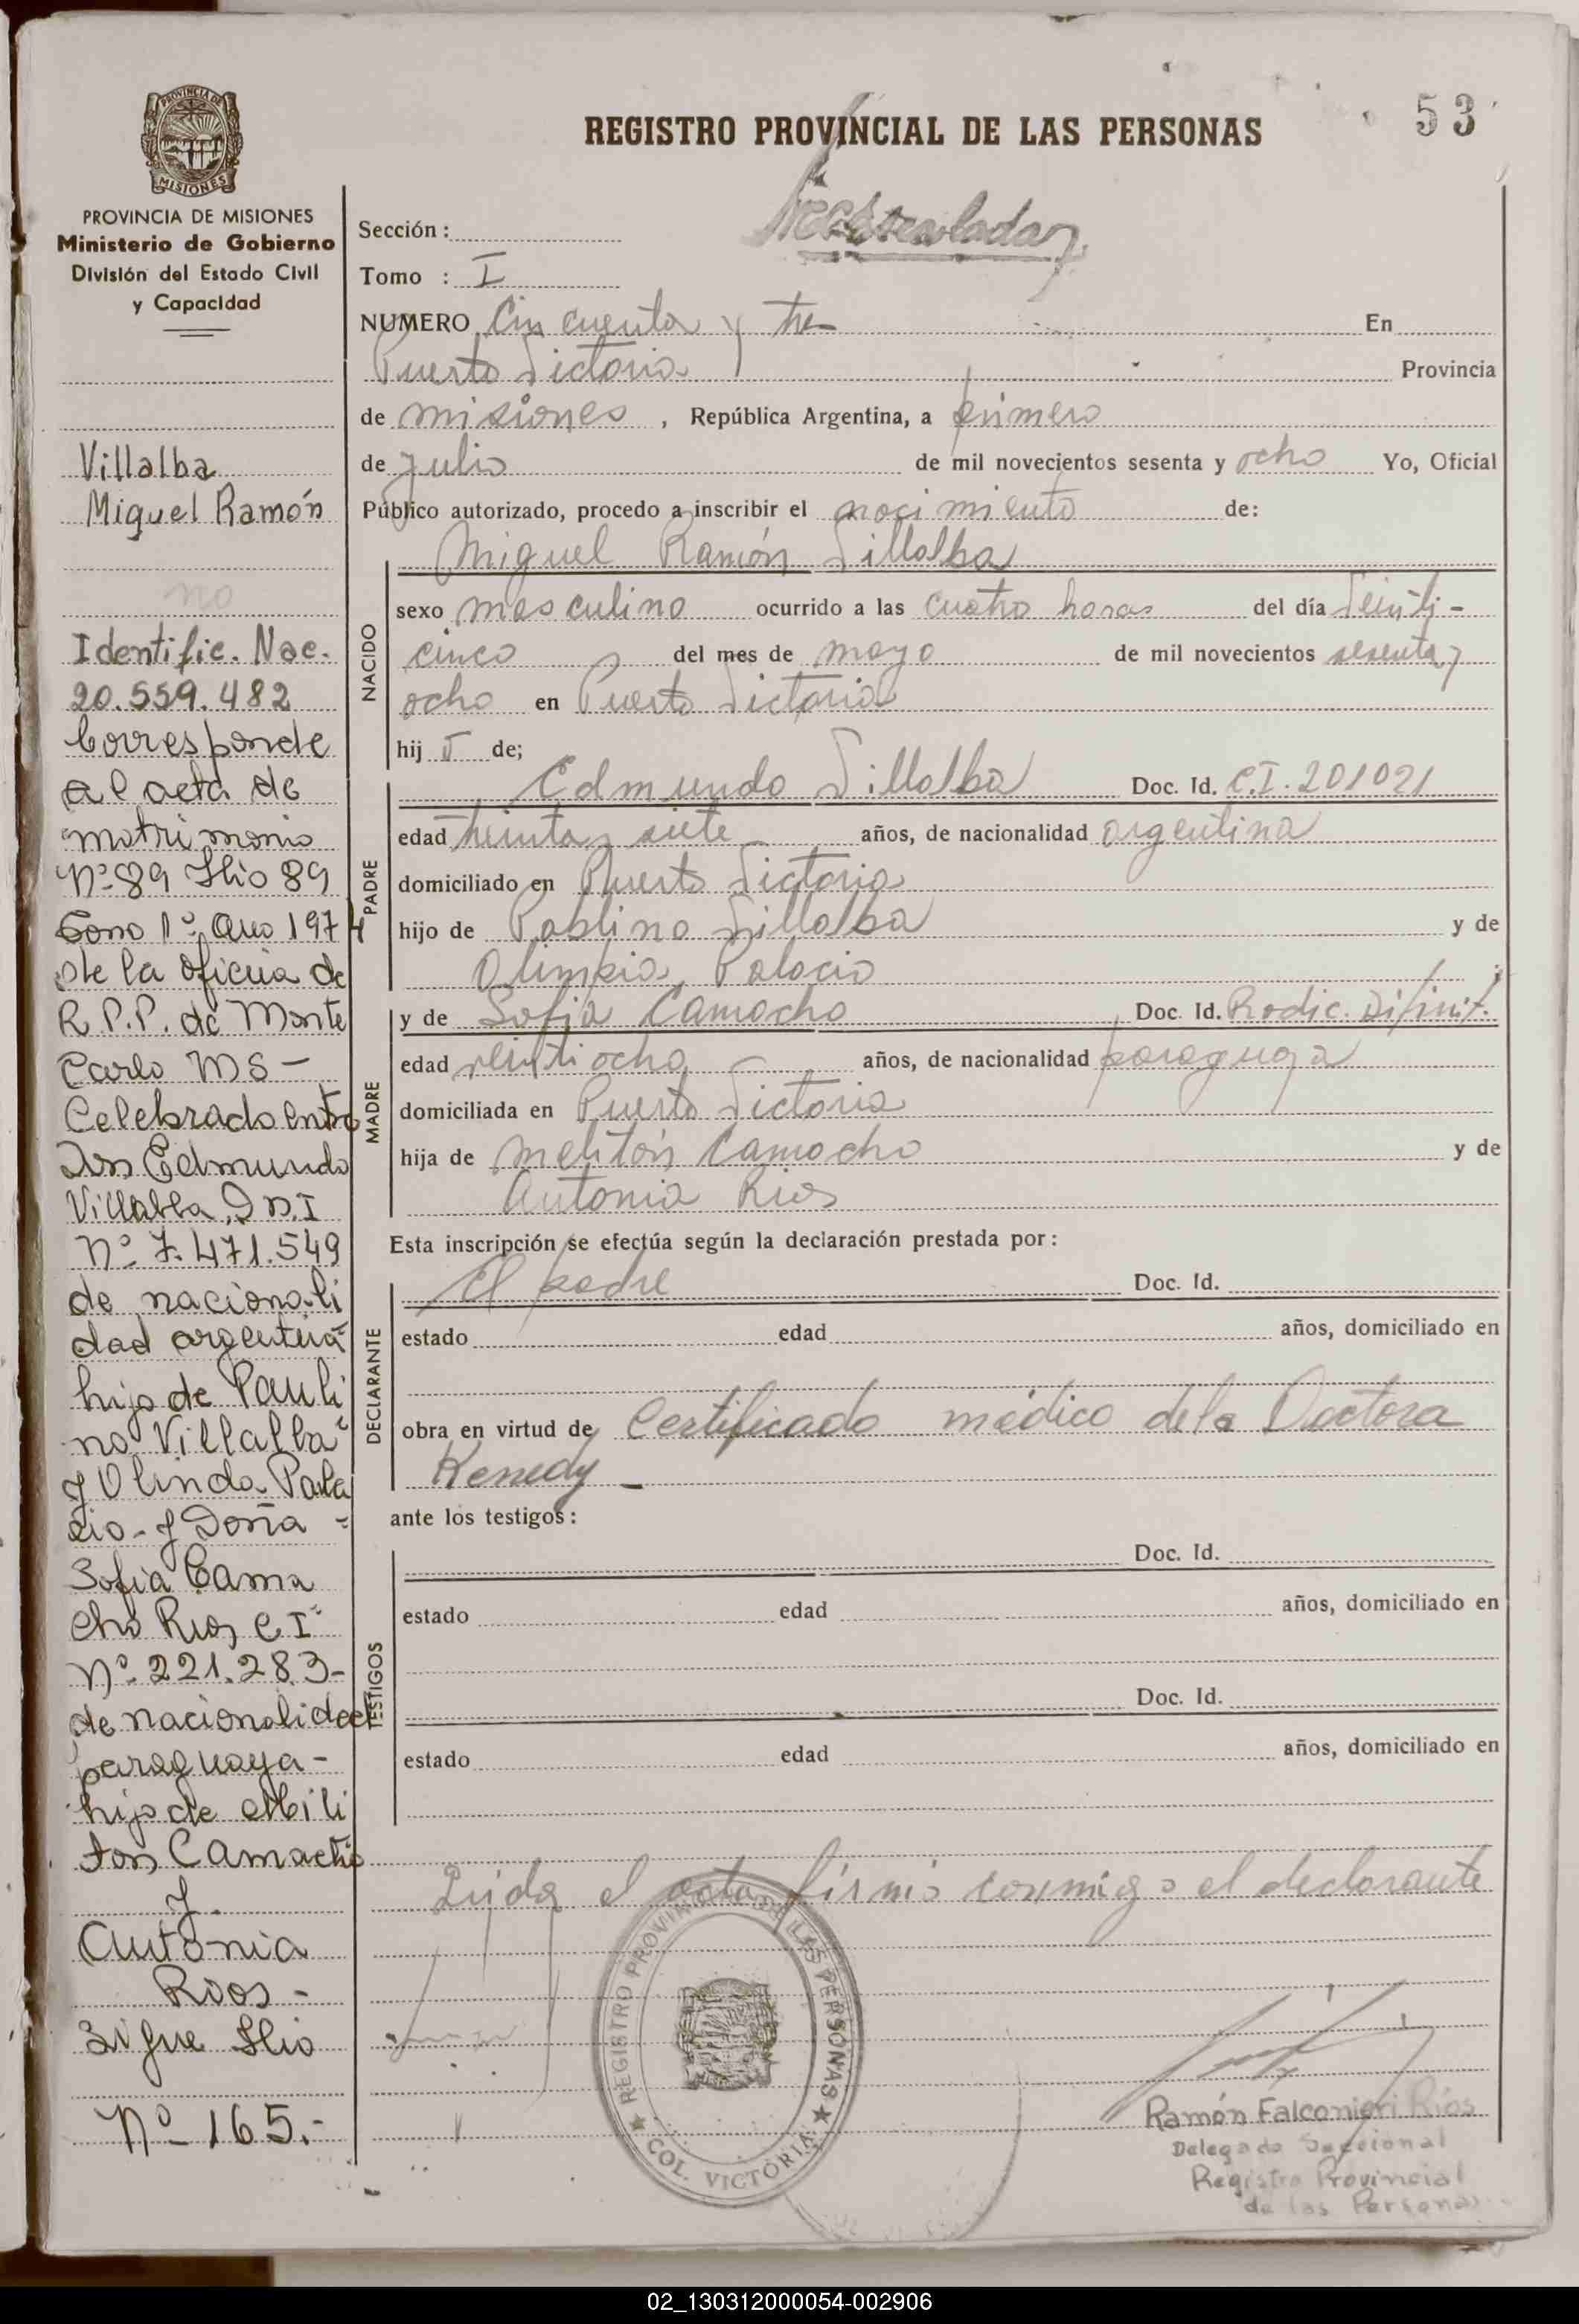 53
REGISTRO PROVINCIAL DE LAS PERSONAS
PROVINCIA DE
MISIONES
PROVINCIA DE MISIONES
Ministerio de Gobierno
División del Estado Civil
y Capacidad
Villalba
Miguel Ramón
no
Identific. Nac.
20.559.482
Corresponde
al acta de
matrimonio
Nº 89 flio 89
tomo 1º Año 1974
de la oficina de
R.P.P. de Monte
Carlo MS -
Celebrado entre
Don Edmundo
Villalba D.N.I
Nº 7.471.549
de nacionali
dad argentina
hijo de Pauli
no Villalba
y Olinda Pala
cio - y Doña
Sofia Cama
cho Rios C I
Nº 221.283-
de nacionalidad
paraguaya -
hija de Mili
ton Camacho
y
Antonia
Rios -
Sigue flio
Nº 165.-
Sección :
Tomo : I
NUMERO Cincuenta y tres En
Puerto Victoria Provincia
de misiones , República Argentina, a primero
de Julio de mil novecientos sesenta y ocho Yo, Oficial
Público autorizado, procedo a inscribir el nacimiento de:
Miguel Ramón Villalba
NACIDO
sexo masculino ocurrido a las cuatro horas del día Veinti-
cinco del mes de mayo de mil novecientos sesenta y
ocho en Puerto Victoria
hij o de;
PADRE
Edmundo Villalba Doc. Id. C.I. 201021
edad treinta y siete años, de nacionalidad argentina
domiciliado en Puerto Victoria
hijo de Pablino Villalba y de
Olimpia Palacio
MADRE
y de Sofia Camacho Doc. Id. Radic. Difinit.
edad veintiocho años, de nacionalidad paraguaya
domiciliada en Puerto Victoria
hija de Melitón Camacho y de
Antonia Rios
Esta inscripción se efectúa según la declaración prestada por:
DECLARANTE
El padre Doc. Id.
estado edad años, domiciliado en
obra en virtud de Certificado médico de la Doctora
Kenedy -
ante los testigos:
TESTIGOS
Doc. Id.
estado edad años, domiciliado en
Doc. Id.
estado edad años, domiciliado en
Leida el acta, firmó conmigo el declarante
REGISTRO PROVINCIAL DE LAS PERSONAS
COL. VICTORIA
Ramón Falconieri Ríos
Delegado Seccional
Registro Provincial
de las Personas
02_130312000054-002906